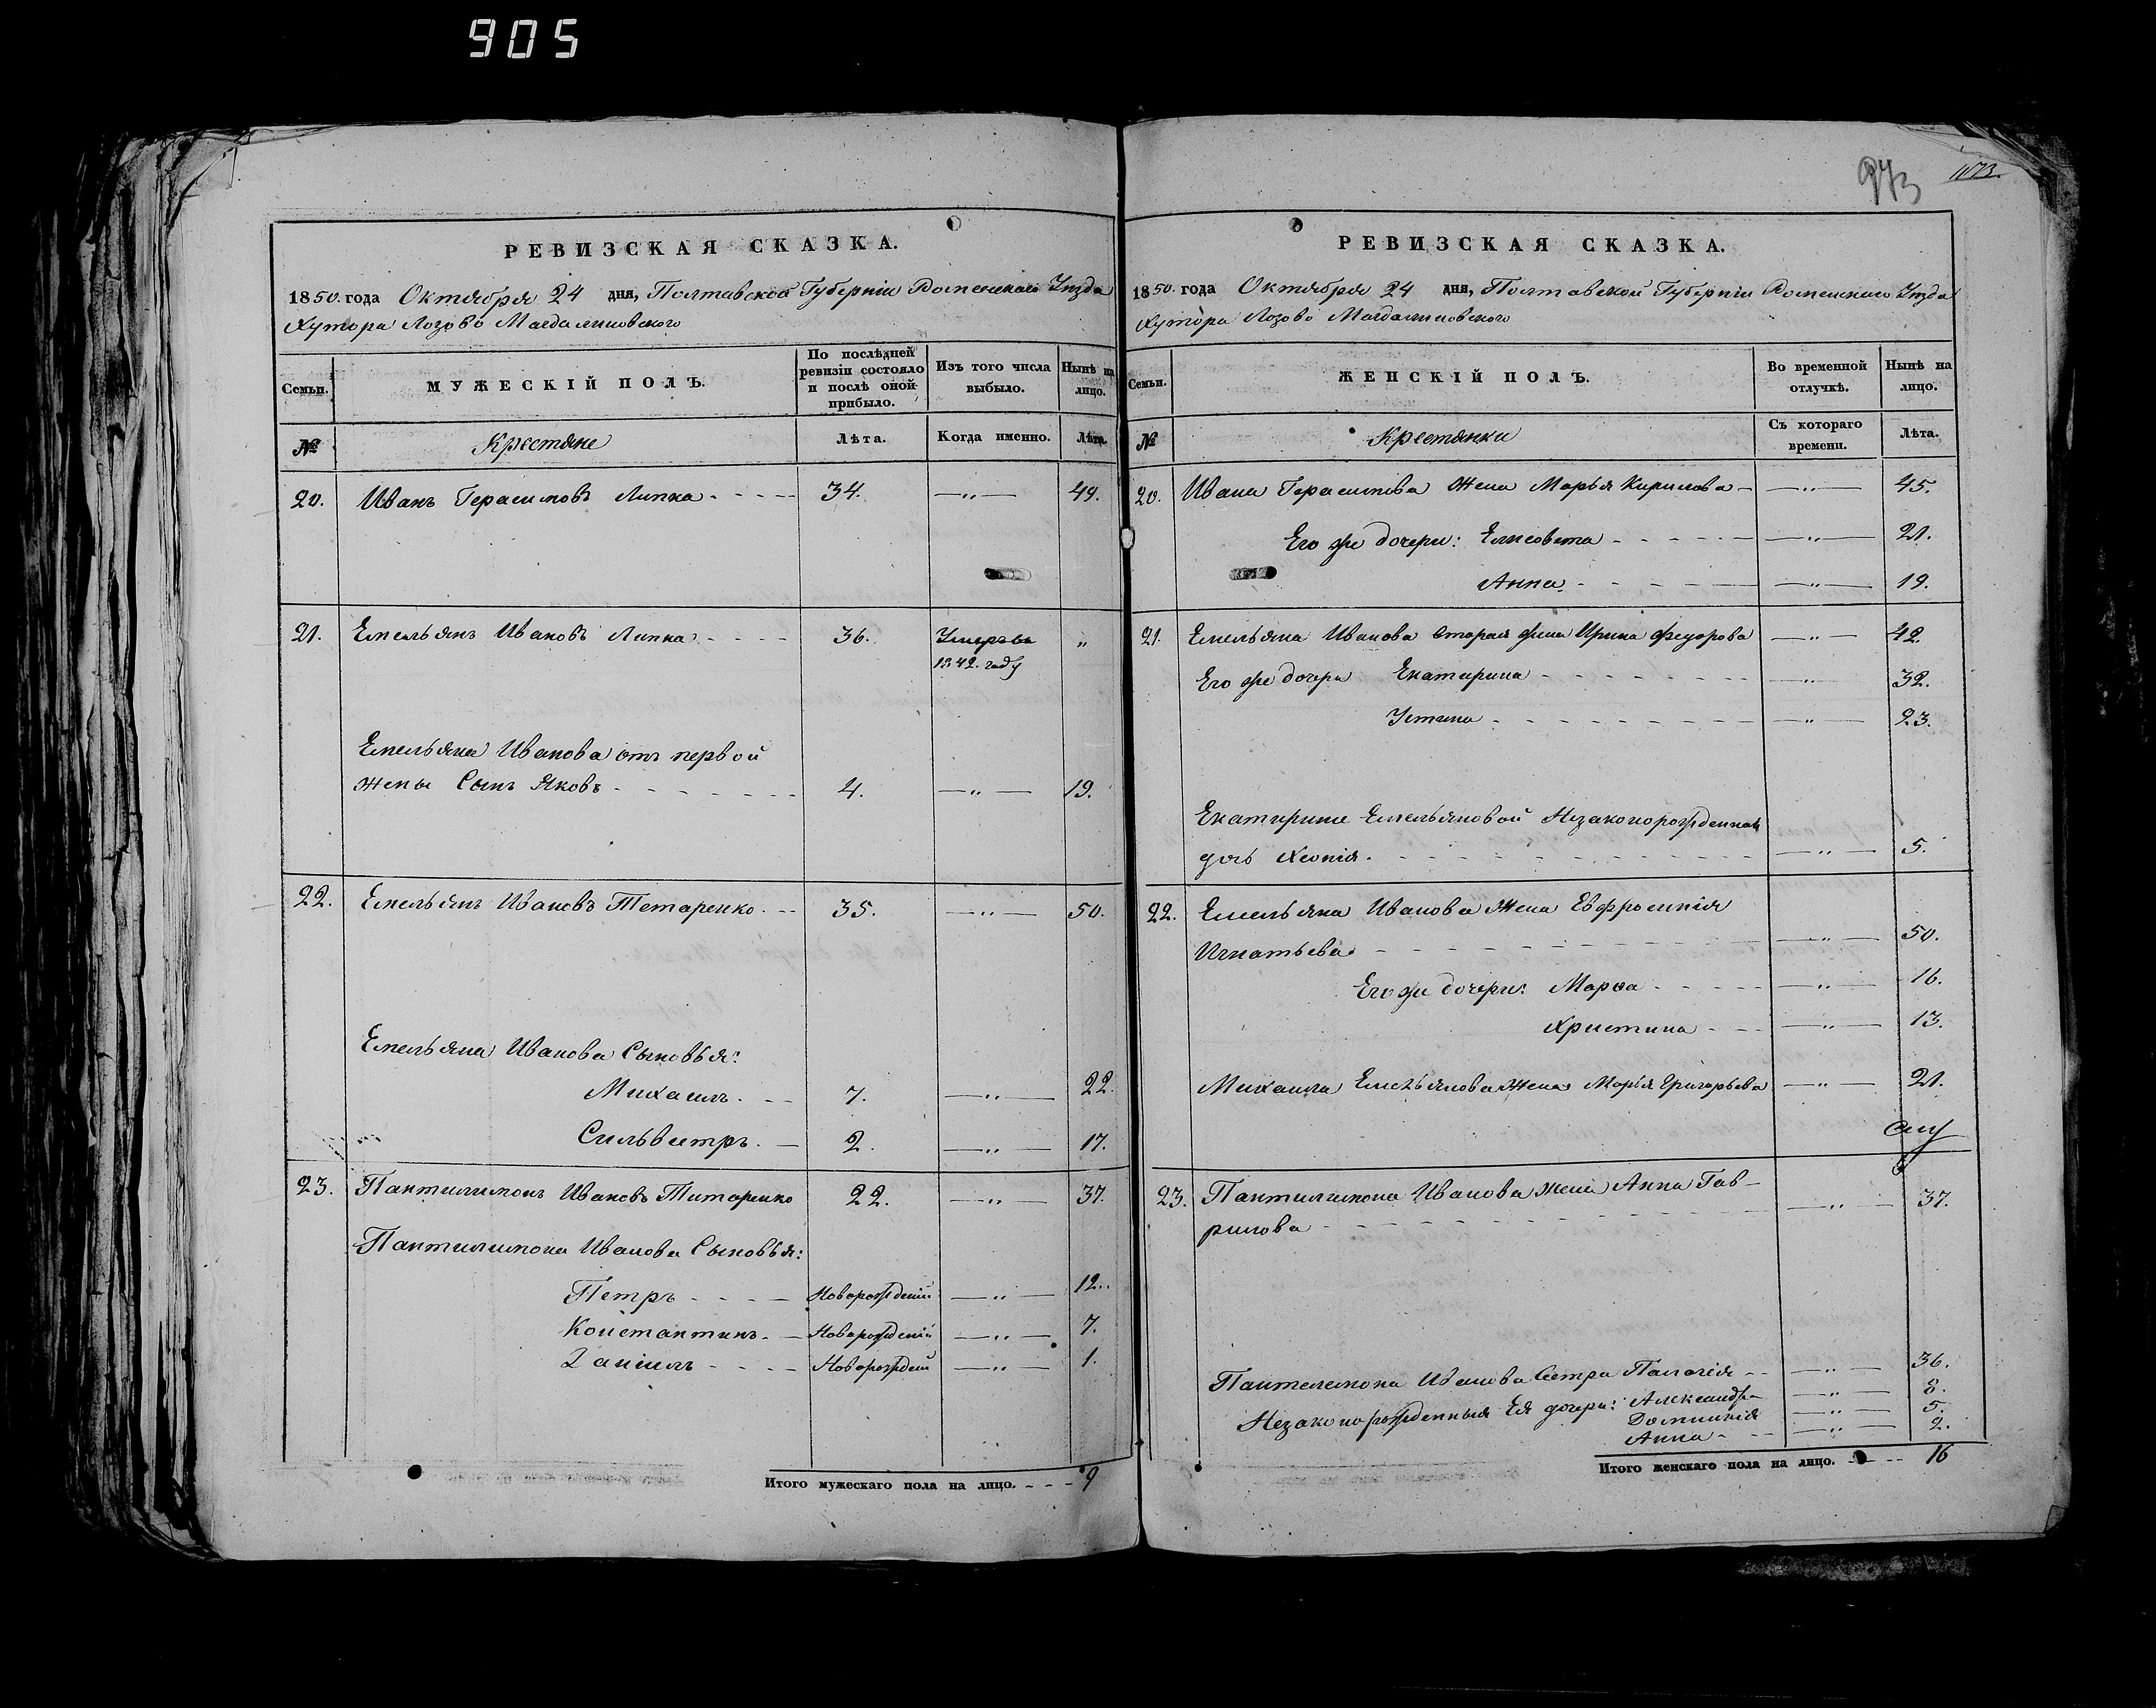 905
973
1073.
РЕВИЗСКАЯ СКАЗКА.
1850. года Октября 24 дня, Полтавской Губерніи Роменскаго Уѣзда
Хутора Лозово Магдалиновского
Семьи. МУЖЕСКІЙ ПОЛЪ. По послѣдней ревизіи состояло и послѣ оной прибыло. Изъ того числа выбыло. Нынѣ на лицо.
№ Крестяне Лѣта. Когда именно. Лѣта.
20. Иванъ Герасимовъ Липка - - - - 34. —"— 49.
21. Емельянъ Ивановъ Липка - - - - 36. Умеръ въ "
1842. году
Емельяна Иванова отъ первой
жены Сынъ Яковъ - - - - - - - 4. —"— 19.
22. Емельянъ Ивановъ Тетаренко - - 35. —"— 50.
Емельяна Иванова Сыновья:
Михаилъ. - - 7. —"— 22.
Сильвестръ. — 2. —"— 17.
23. Пантилимонъ Ивановъ Титаренко 22. —"— 37.
Пантилимона Иванова Сыновья:
Петръ - - - - Новорожденій —"— 12.
Констант­инъ. — Новорожденій —"— 7.
Даніилъ - - - - Новорожден —"— 1.
Итого мужескаго пола на лицо. - - - 9
РЕВИЗСКАЯ СКАЗКА.
1850. года Октября 24 дня, Полтавской Губерніи Роменскаго Уѣзда
Хутора Лозово Магдалиновского
Семьи. ЖЕНСКІЙ ПОЛЪ. Во временной отлучкѣ. Нынѣ на лицо.
№ Крестянки Съ котораго времени. Лѣта.
20. Ивана Герасимова Жена Марья Кирилова — —"— 45.
Его же дочери: Елисовета - - - - - —"— 21.
Анна - - - - - —"— 19.
21. Емельяна Иванова вторая жена Ирина Федорова —"— 42.
Его же дочери Екатирина - - - - - - - —"— 32.
Устина - - - - - - - - —"— 23.
Екатирине Емельяновой Незаконорожденная
дочь Хеонія. - - - - - - - - - —"— 5.
22. Емельяна Иванова Жена Евфросинія
Игнатьева - - - - - - - - - - —"— 50.
Его же дочери: Марѳа - - - - - —"— 16.
Христина - - - —"— 13.
Михаила Емельянова Жена Марья Григорьева —"— 21.
23. Пантилимона Иванова жена Анна Гав-
рилова - - - - - - - - - - —"— 37.
Пантелемона Иванова Сестра Палагія - - —"— 36.
Незаконорожденныя Ея дочери: Александра —"— 8.
Домникія —"— 5.
Анна - - - —"— 2.
Итого женскаго пола на лицо. - - - - 16